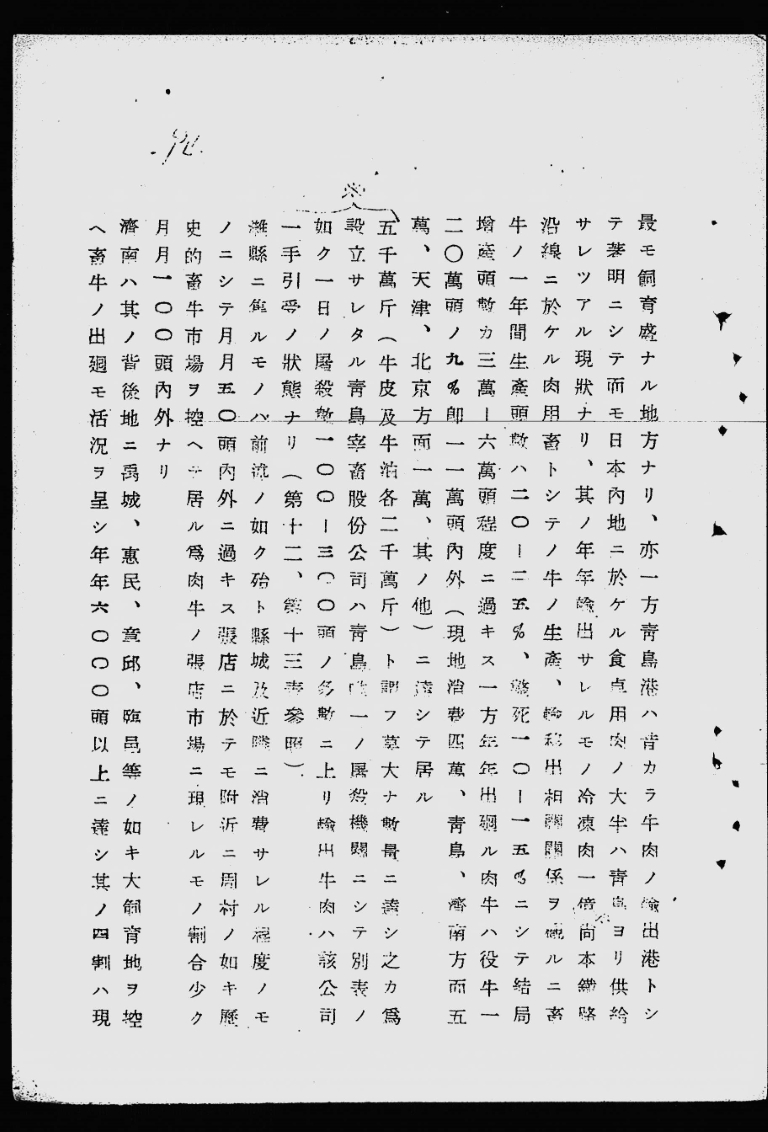 最モ飼育盛ナル地方ナリ、亦一方靑島港ハ昔カラ牛肉ノ輸出港トシ
テ著明ニシテ而モ日本內地ニ於ケル食卓用肉ノ大半ハ靑島ヨリ供給
サレツアル現狀ナリ、其ノ年年輸出サレルモノ冷凍肉一億尚本鐵路
沿線ニ於ケル肉用畜トシテノ牛ノ生產、輸移出相關關係ヲ觀ルニ畜
牛ノ一年間生產頭數ハ二〇ー二五%、斃死一〇ー一五%ニシテ結局
增產頭數カ三萬ー六萬頭程度ニ過キス一方年年出廻ル肉牛ハ役牛一
二〇萬頭ノ九%卽一一萬頭內外(現地消費四萬、靑島、濟南方面五
萬、天津、北京方面一萬、其ノ他)ニ達シテ居ル
五千萬斤(牛皮及牛油各二千萬斤)ト謂フ莫大ナ數量ニ達シ之カ爲
設立サレタル靑島宰畜股份公司ハ靑島唯一ノ屠殺機關ニシテ別表ノ
如ク一日ノ屠殺數一〇〇ー三〇〇頭ノ多數ニ上リ輸出牛肉ハ該公司
一手引受ノ狀態ナリ(第十二、第十三表參照)
濰縣ニ集ルモノハ前述ノ如ク殆ト縣城及近隣ニ消費サレル程度ノモ
ノニシテ月月五〇頭內外ニ過キス張店ニ於テモ附近ニ周村ノ如キ歷
史的畜牛市場ヲ控ヘテ居ル爲肉牛ノ張店市場ニ現レルモノ割合少ク
月月一〇〇頭內外ナリ
濟南ハ其ノ背後地ニ禹城、惠民、章邱、臨邑等ノ如キ大飼育地ヲ控
ヘ畜牛ノ出廻モ活況ヲ呈シ年年六〇〇〇頭以上ニ達シ其ノ四割ハ現